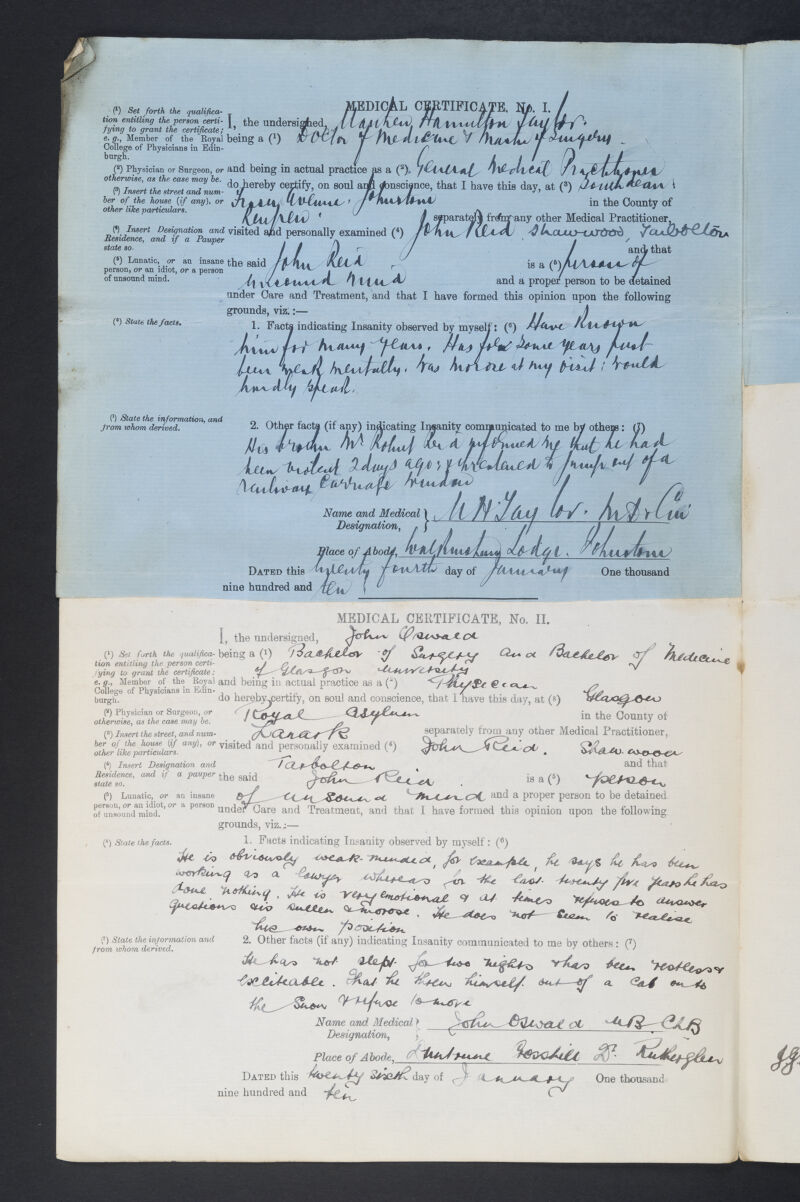 MEDICAL CERTIFICATE, No. I.
(¹) Set forth the qualifica-
tion entitling the person certi-
fying to grant the certificate;
e.g., Member of the Royal
College of Physicians in Edin-
burgh.
I, the undersigned, Hamilton Taylor.
being a (¹) Doctor of Medicine & Master of Surgery.
(²) Physician or Surgeon, or
otherwise, as the case may be.
and being in actual practice as a (²) General Medical Practitioner
(³) Insert the street and num-
ber of the house (if any), or
other like particulars.
do hereby certify, on soul and conscience, that I have this day, at (³) Southdean
Avenue, Johnstone in the County of
Renfrew separately from any other Medical Practitioner,
(⁴) Insert Designation and
Residence, and if a Pauper
state so.
visited and personally examined (⁴) John Reid Shawwood, Tarbolton
and that
(⁵) Lunatic, or an insane
person, or an idiot, or a person
of unsound mind.
the said John Reid is a (⁵) person of
unsound mind and a proper person to be detained
under Care and Treatment, and that I have formed this opinion upon the following
grounds, viz.:—
(⁶) State the facts.
1. Facts indicating Insanity observed by myself: (⁶) Have Known
him for many years. Has for some years past
been weak mentally. Was morose at my visit: would
hardly speak.
(⁷) State the information, and
from whom derived.
2. Other facts (if any) indicating Insanity communicated to me by others: (⁷)
His brother Mr Robert Reid informed me that he had
been violent 2 days ago: & threatened to jump out of a
railway carriage window
Name and Medical
Designation, M H Taylor. M.D. & C.M.
Place of Abode, Lodge. Johnstone
DATED this twenty fourth day of January One thousand
nine hundred and ten
MEDICAL CERTIFICATE, No. II.
I, the undersigned, John Oswald
(¹) Set forth the qualifica-
tion entitling the person certi-
fying to grant the certificate;
e.g., Member of the Royal
College of Physicians in Edin-
burgh.
being a (¹) Bachelor of Surgery and Bachelor of Medicine
of Glasgow University
and being in actual practice as a (²) Physician
(²) Physician or Surgeon, or
otherwise, as the case may be.
do hereby certify, on soul and conscience, that I have this day, at (³) Glasgow
Royal Asylum in the County of
(³) Insert the street, and num-
ber of the house (if any), or
other like particulars.
Lanark separately from any other Medical Practitioner,
visited and personally examined (⁴) John Reid. Shawwood
(⁴) Insert Designation and
Residence, and if a pauper
state so.
Tarbolton and that
the said John Reid is a (⁵) person
(⁵) Lunatic, or an insane
person, or an idiot, or a person
of unsound mind.
of unsound mind and a proper person to be detained
under Care and Treatment, and that I have formed this opinion upon the following
grounds, viz.:—
(⁶) State the facts.
1. Facts indicating Insanity observed by myself: (⁶)
He is obviously weak-minded, for example, he says he has been
working as a lawyer whereas for the last twenty five years he has
done nothing. He is very emotional & at times refuses to answer
questions & is sullen & morose. He does not seem to realise
his own position
(⁷) State the information and
from whom derived.
2. Other facts (if any) indicating Insanity communicated to me by others: (⁷)
He has not slept for two nights & has been restless &
exciteable. That he threw himself out of a cab on to
the snow & refuse to move
Name and Medical
Designation, John Oswald M.B. Ch.B
Place of Abode, Crosshill Dr. Rutherglen
DATED this twenty sixth day of January One thousand
nine hundred and ten